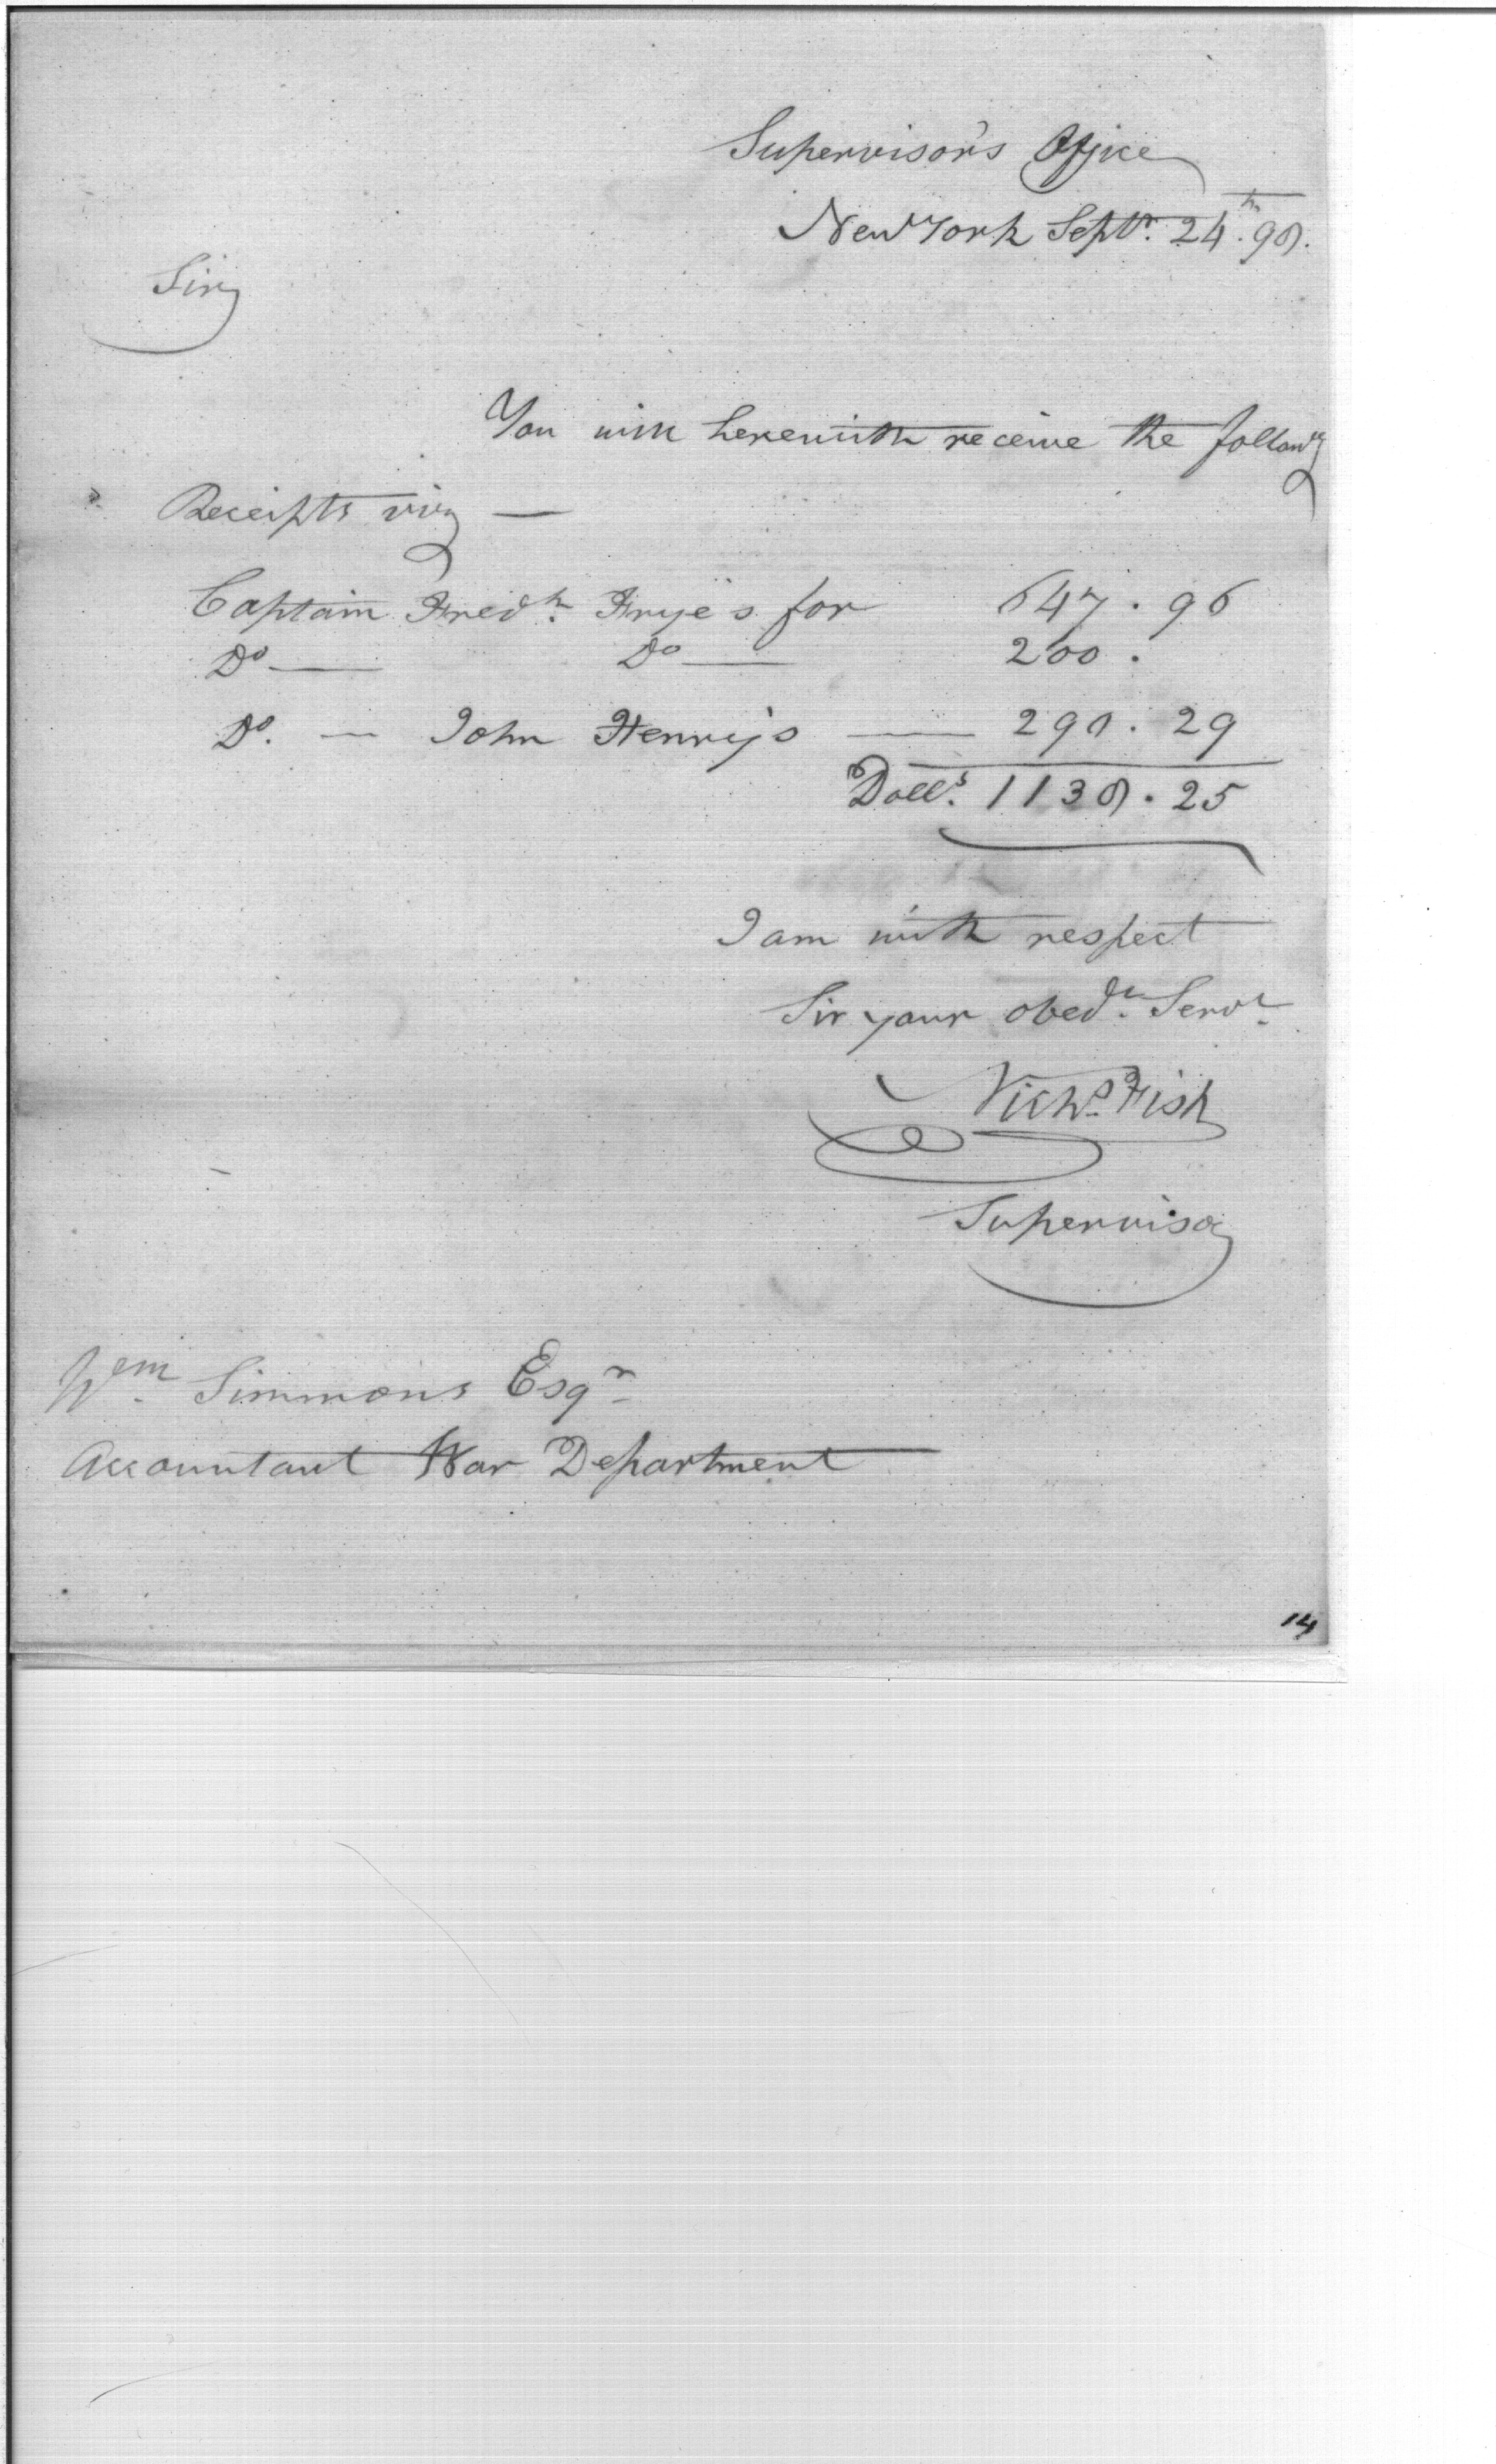 Supervisor's Office
New York Septr. 24th. 98.
Sir,
You will herewith receive the followg
Receipts viz —
Captain Fredk. Frye's for 647. 96
Do — Do — 200.
Do. — John Henry's — 290. 29
Dolls. 1138. 25
I am with respect
Sir your obedt. Servt.
Nichs. Fish
Supervisor
Wm. Simmons Esqr.
Accountant War Department
14